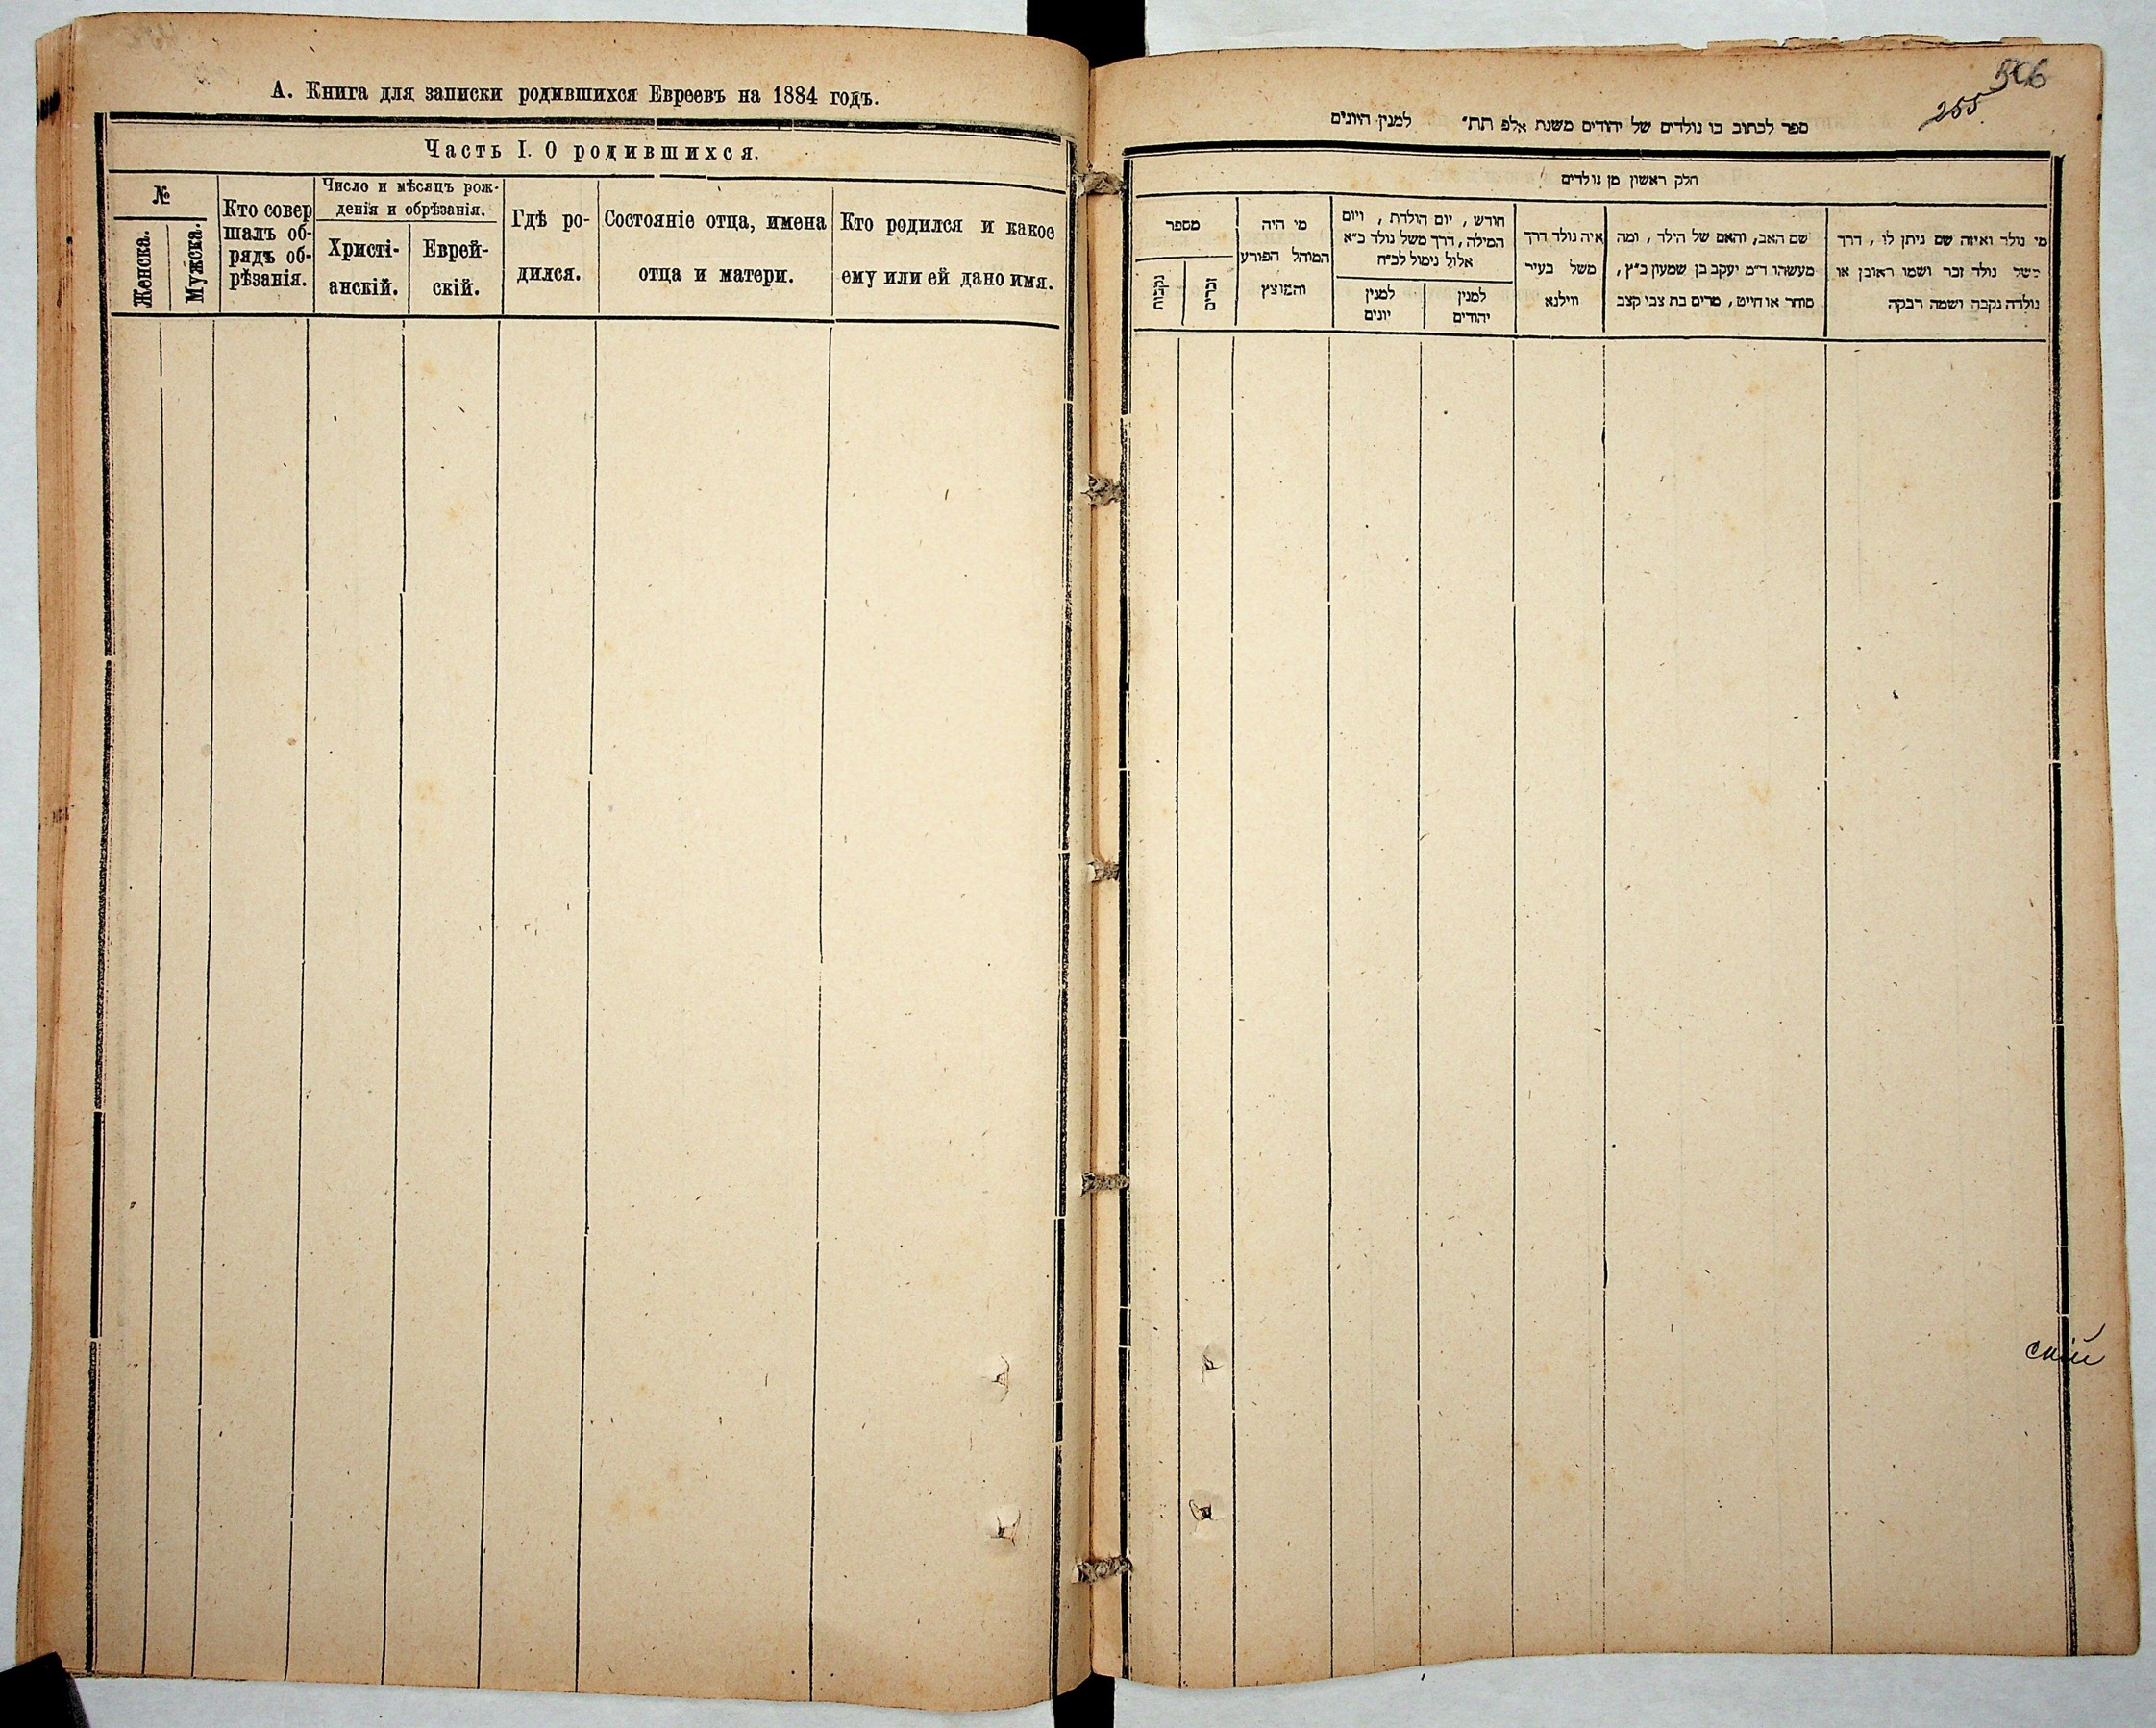 А. Книга для записки родившихся Евреевъ на 1884 годъ.
Часть I. О родившихся.
№
Женска.
Мужска.
Кто совер
шалъ об-
рядъ об-
рѣзанія.
Число и мѣсяцъ рож-
денія и обрѣзанія.
Христі-
анскій.
Еврей-
скій.
Гдѣ ро-
дился.
Состояніе отца, имена
отца и матери.
Кто родился и какое
ему или ей дано имя.
506
255
ספר לכתוב בו נולדים של יהודים משנת אלפ תת״ למנין היונים
חלק ראשון מן נולדים
מי נולד ואיזה שם ניתן לו, דרך
משל נולד זכר ושמו ראובן או
נולדה נקבה ושמה רבקה
שם האב, והאם של הילד, ומה
מעשהו ד״מ יעקב בן שמעון כ״ץ,
סוחר או חייט, מרים בת צבי קצב
איה נולד דרך
משל בעיר
ווילנא
חודש, יום הולדת, ויום
המילה, דרך משל נולד כ״א
אלול נימול לכ״ח
למנין
יהודים
למנין
יונים
מי היה
המוהל הפורע
והמוצץ
מספר
זכרים
נקבות
скій